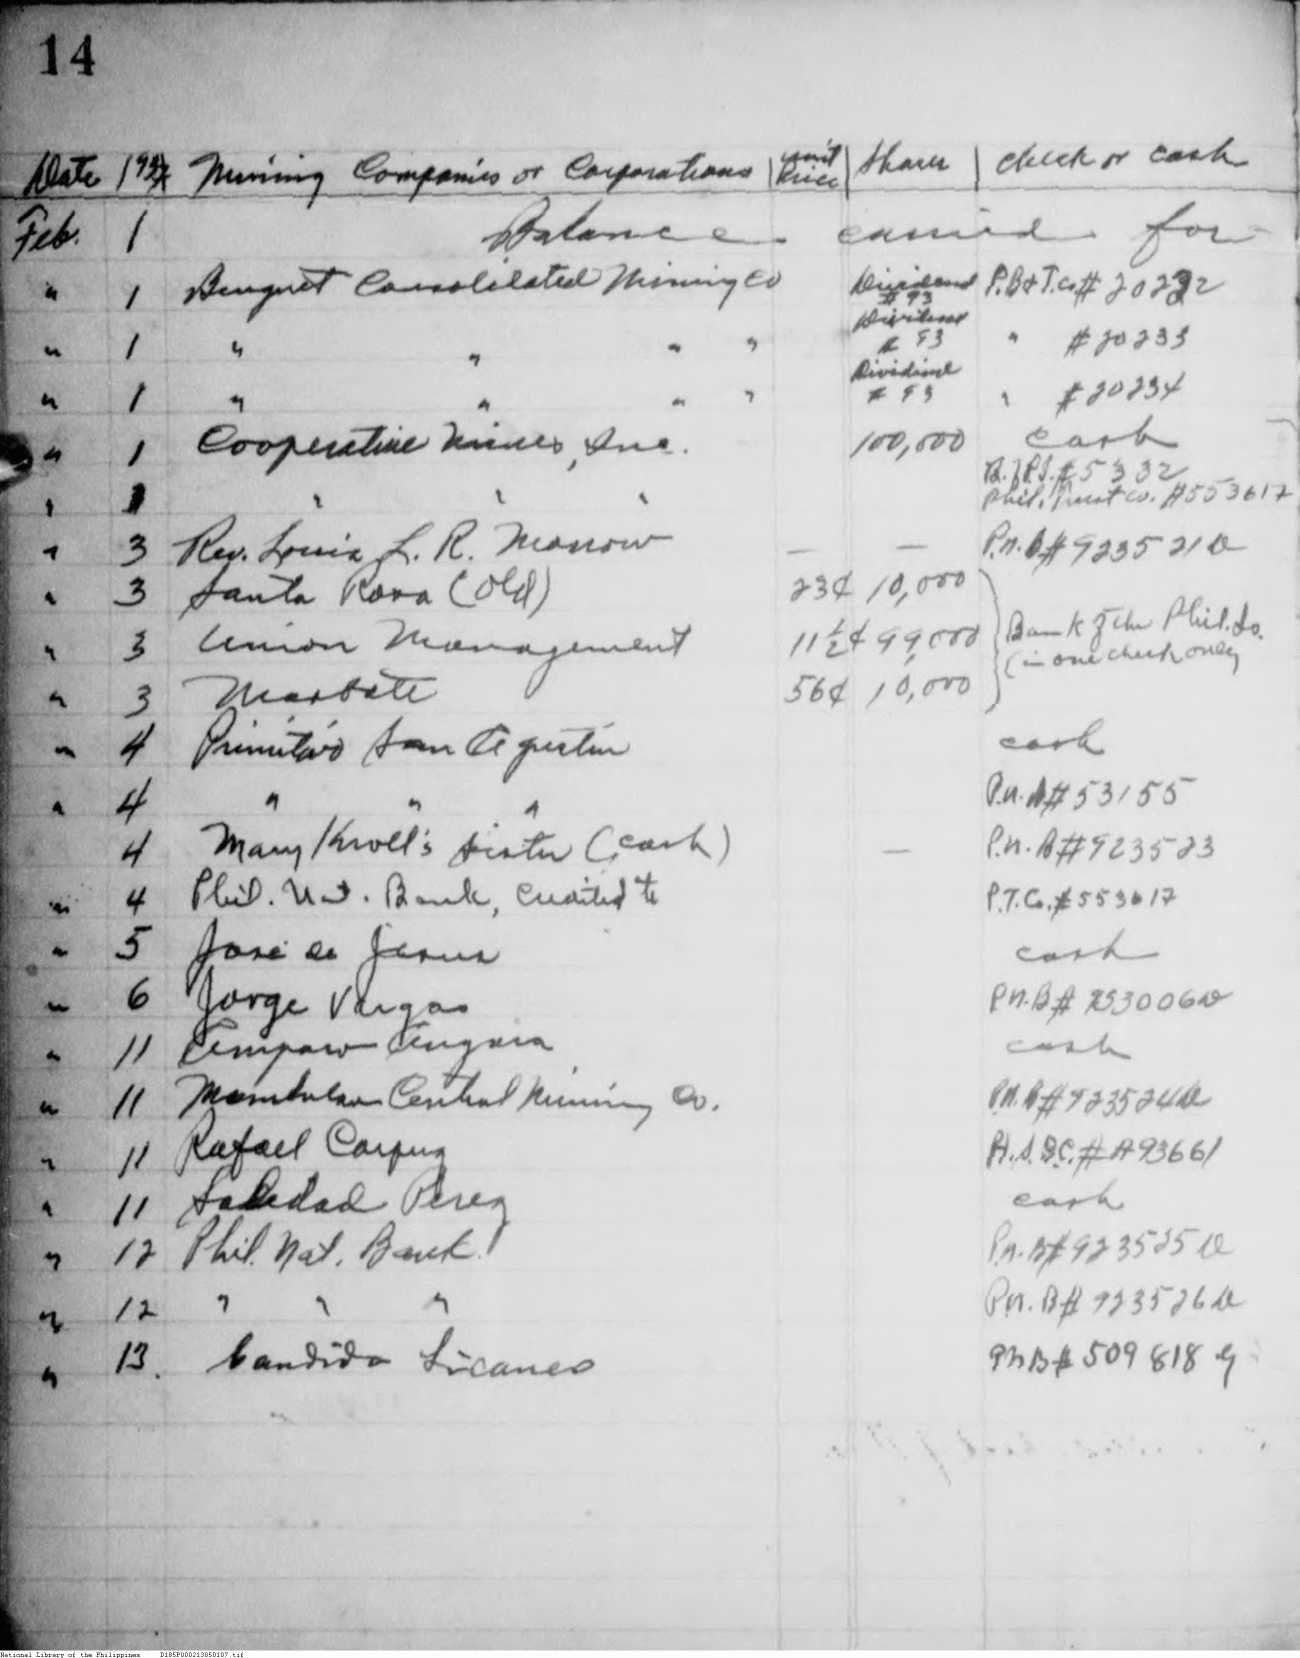 14
Date 1937 Mining Companies or Corporations unit Price Shares check or cash
Feb. 1 Balance carried for-
" 1 Benguet Consolidated Mining Co Dividend # 93 P.B & T. Co # 20232
" 1 " " " " Dividend # 93 " # 20233
" 1 " " " " Dividend # 93 " # 20234
" 1 Cooperative Mines, Inc. 100,000 cash
B. / P.I. # 5332
" 1 " " " Phil. Trust Co. # 553617
" 3 Rev. Louis L. R. Morrow — — P.N.B # 923521 D
" 3 Santa Rosa (Old) 23¢ 10,000
" 3 Union Management 11 1/2 ¢ 99,000 Bank of the Phil. Is.
(in one check only
" 3 Masbate 56¢ 10,000
" 4 Primitivo San Agustin cash
" 4 " " " P.N.B # 53155
4 Mary Kroll's sister (cash) — P.N.B # 923523
" 4 Phil. Nat. Bank, credited to P.T. Co. # 553617
" 5 José de Jesus cash
" 6 Jorge Vargas P.N.B # 953006 D
" 11 Amparo Angara cash
" 11 Mambulao Central Mining Co. P.N.B # 923524 D
" 11 Rafael Carpug H.S.B.C. # A 93661
" 11 Soledad Perez cash
" 12 Phil. Nat. Bank. P.N.B # 923525 D
" 12 " " " P.N.B # 923526 D
" 13. Candido Sicanes PNB # 509818 G
National Library of the Philippines D185P000213050107.tif